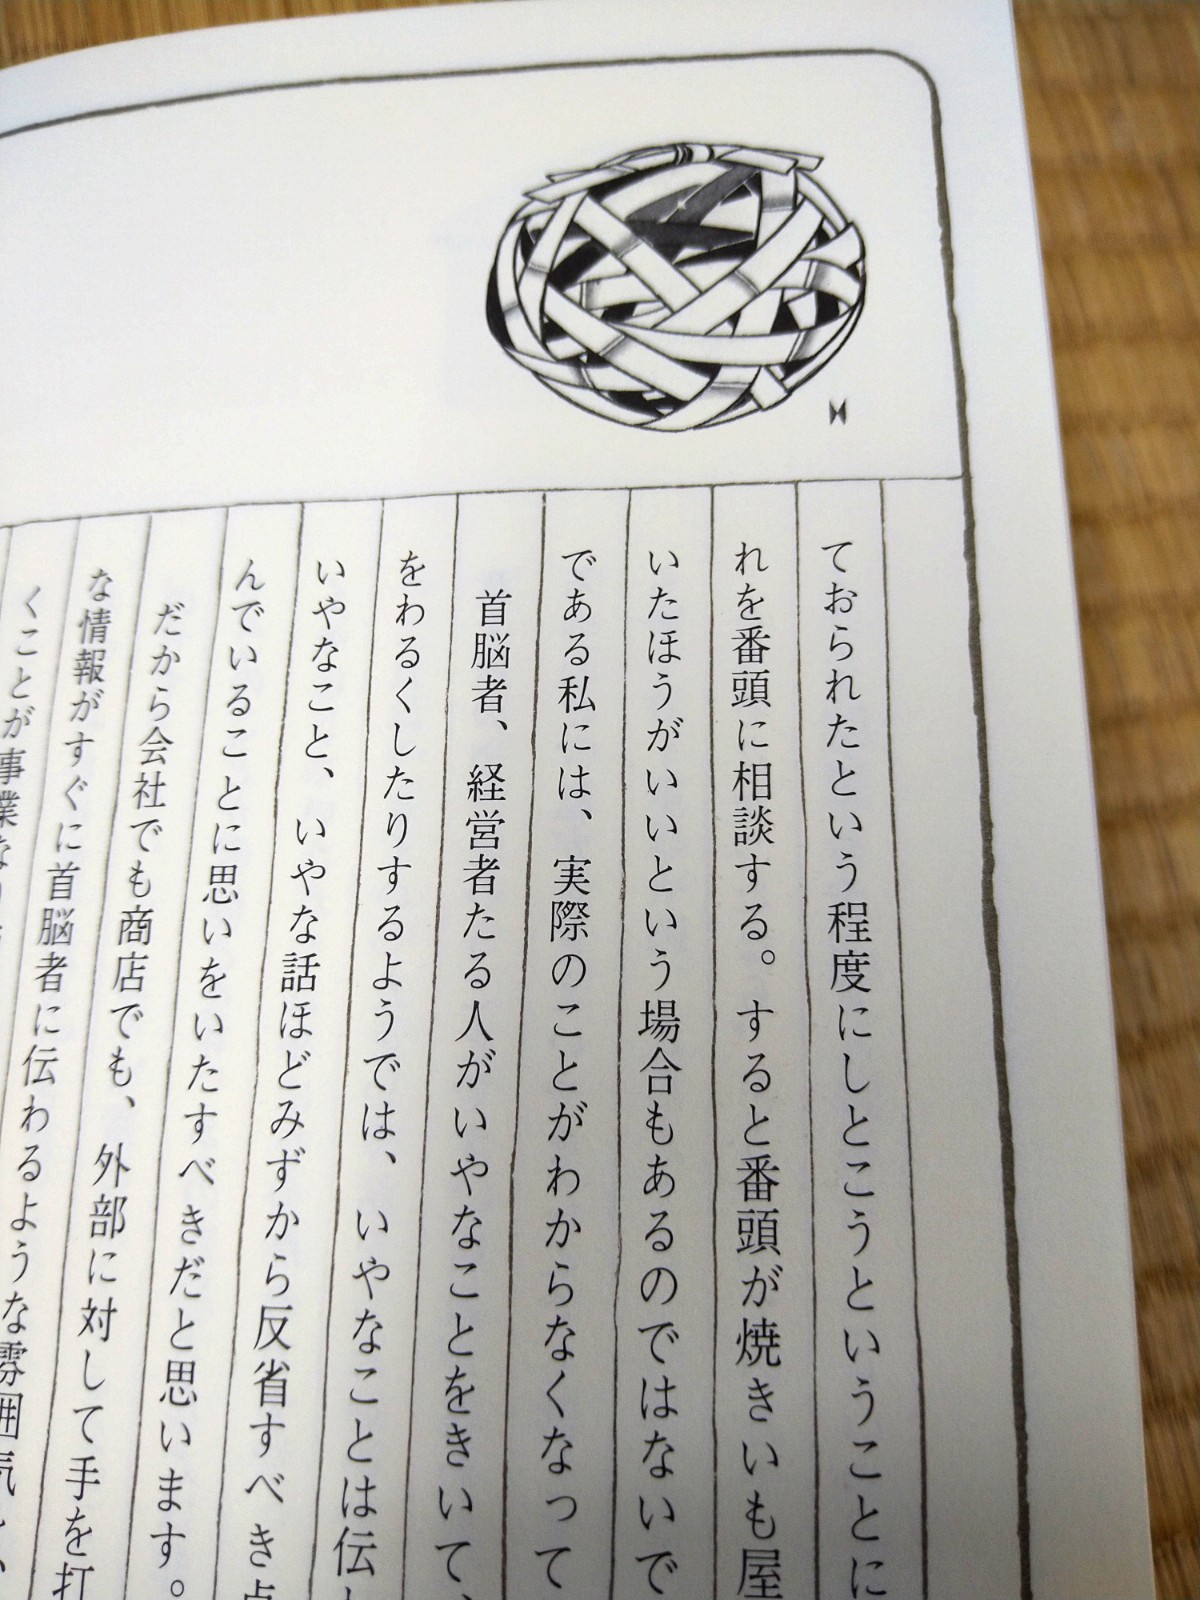 ておられたという程度にしとこうということに
れを番頭に相談する。すると番頭が焼きいも屋
いたほうがいいという場合もあるのではないで
である私には、実際のことがわからなくなって
首脳者、経営者たる人がいやなことをきいて、
をわるくしたりするようでは、いやなことは伝
いやなこと、いやな話ほどみずから反省すべき点
んでいることに思いをいたすべきだと思います。
だから会社でも商店でも、外部に対して手を打
な情報がすぐに首脳者に伝わるような雰囲気
くことが事業な